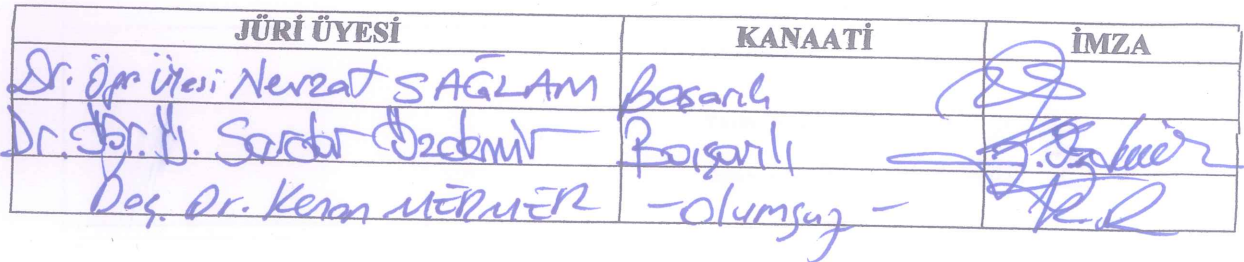 JÜRİ ÜYESİ KANAATİ İMZA
Dr. Öğr. Üyesi Nevzat SAĞLAM Başarılı
Dr. Öğr. Ü. Serdar Özdemir Başarılı
Doç. Dr. Kenan MERMER -Olumsuz-